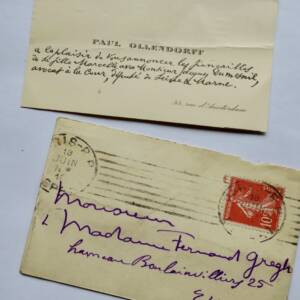 PAUL OLLENDORFF
a le plaisir de vous annoncer les fiançailles
de sa fille Marcelle avec Monsieur Jacques Dumesnil,
avocat à la Cour, député de Seine & Marne.
rue d'Amsterdam
PARIS
JUIN
10
Monsieur
& Madame Fernand Gregh
hameau Boulainvilliers 25